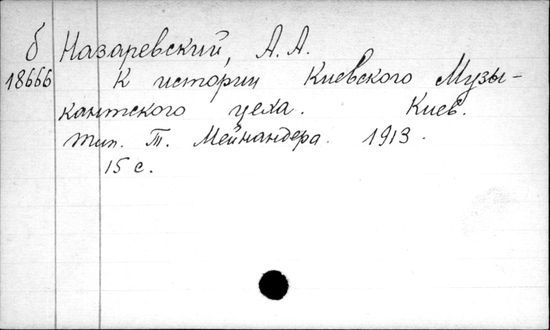 б Назаревский, А. А.
18666 К истории Киевского Музы-
кантского цеха. Киев.
тип. Т. Мейнандера. 1913.
15 с.